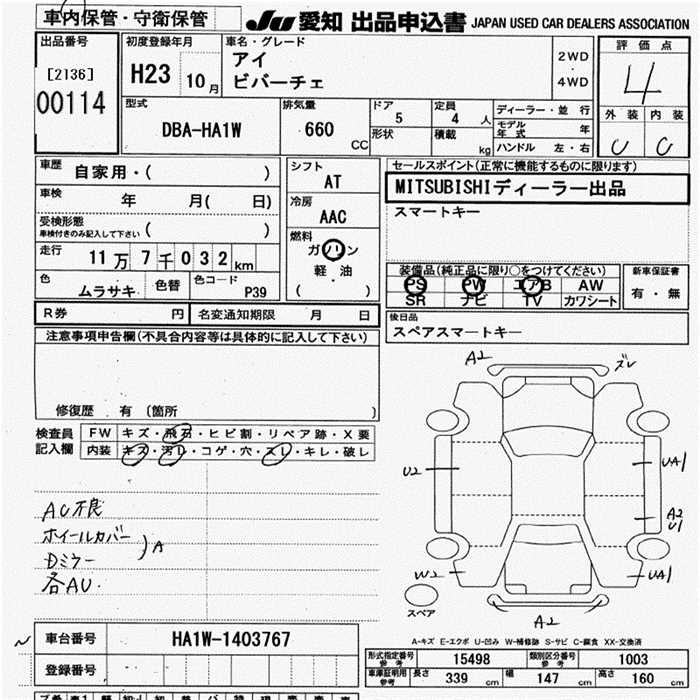 車内保管・守衛保管
JU 愛知 出品申込書 JAPAN USED CAR DEALERS ASSOCIATION
出品番号
[2136]
00114
初度登録年月
H23 10月
車名・グレード
アイ
ビバーチェ
2WD
・
4WD
評価点
4
外装 内装
C C
型式
DBA-HA1W
排気量
660 CC
ドア
5
形状
定員
4 人
積載
kg
ディーラー・並行
モデル年式 年
ハンドル 左・右
車歴 自家用・( )
車検 年 月( 日)
受検形態
車検付きのみ記入して下さい ( )
走行 11万7千032km
色 ムラサキ 色替 色コード P39
シフト
AT
冷房
AAC
燃料
ガソリン
軽・油
( )
セールスポイント(正常に機能するものに限ります)
MITSUBISHIディーラー出品
スマートキー
装備品(純正品に限り○をつけてください)
PS PW エアB AW
SR ナビ TV カワシート
新車保証書
有・無
後日品
スペアスマートキー
R券 円 名変通知期限 月 日
注意事項申告欄(不具合内容等は具体的に記入して下さい)
修復歴 有 (箇所 )
検査員
記入欄
FW キズ・飛石・ヒビ割・リペア跡・X要
内装 キズ・汚レ・コゲ・穴・スレ・キレ・破レ
AC不良
ホイールカバー
Dミラー
)A
各AU.
A2
ズレ
U2
UA1
A2
U1
W2
UA1
A2
スペア
A-キズ E-エクボ U-凹み W-補修跡 S-サビ C-腐食 XX-交換済
車台番号 HA1W-1403767
登録番号
形式指定番号
参考
15498
類別区分番号
参考
1003
車庫証明用
参考
長さ 339 cm 幅 147 cm 高さ 160 cm